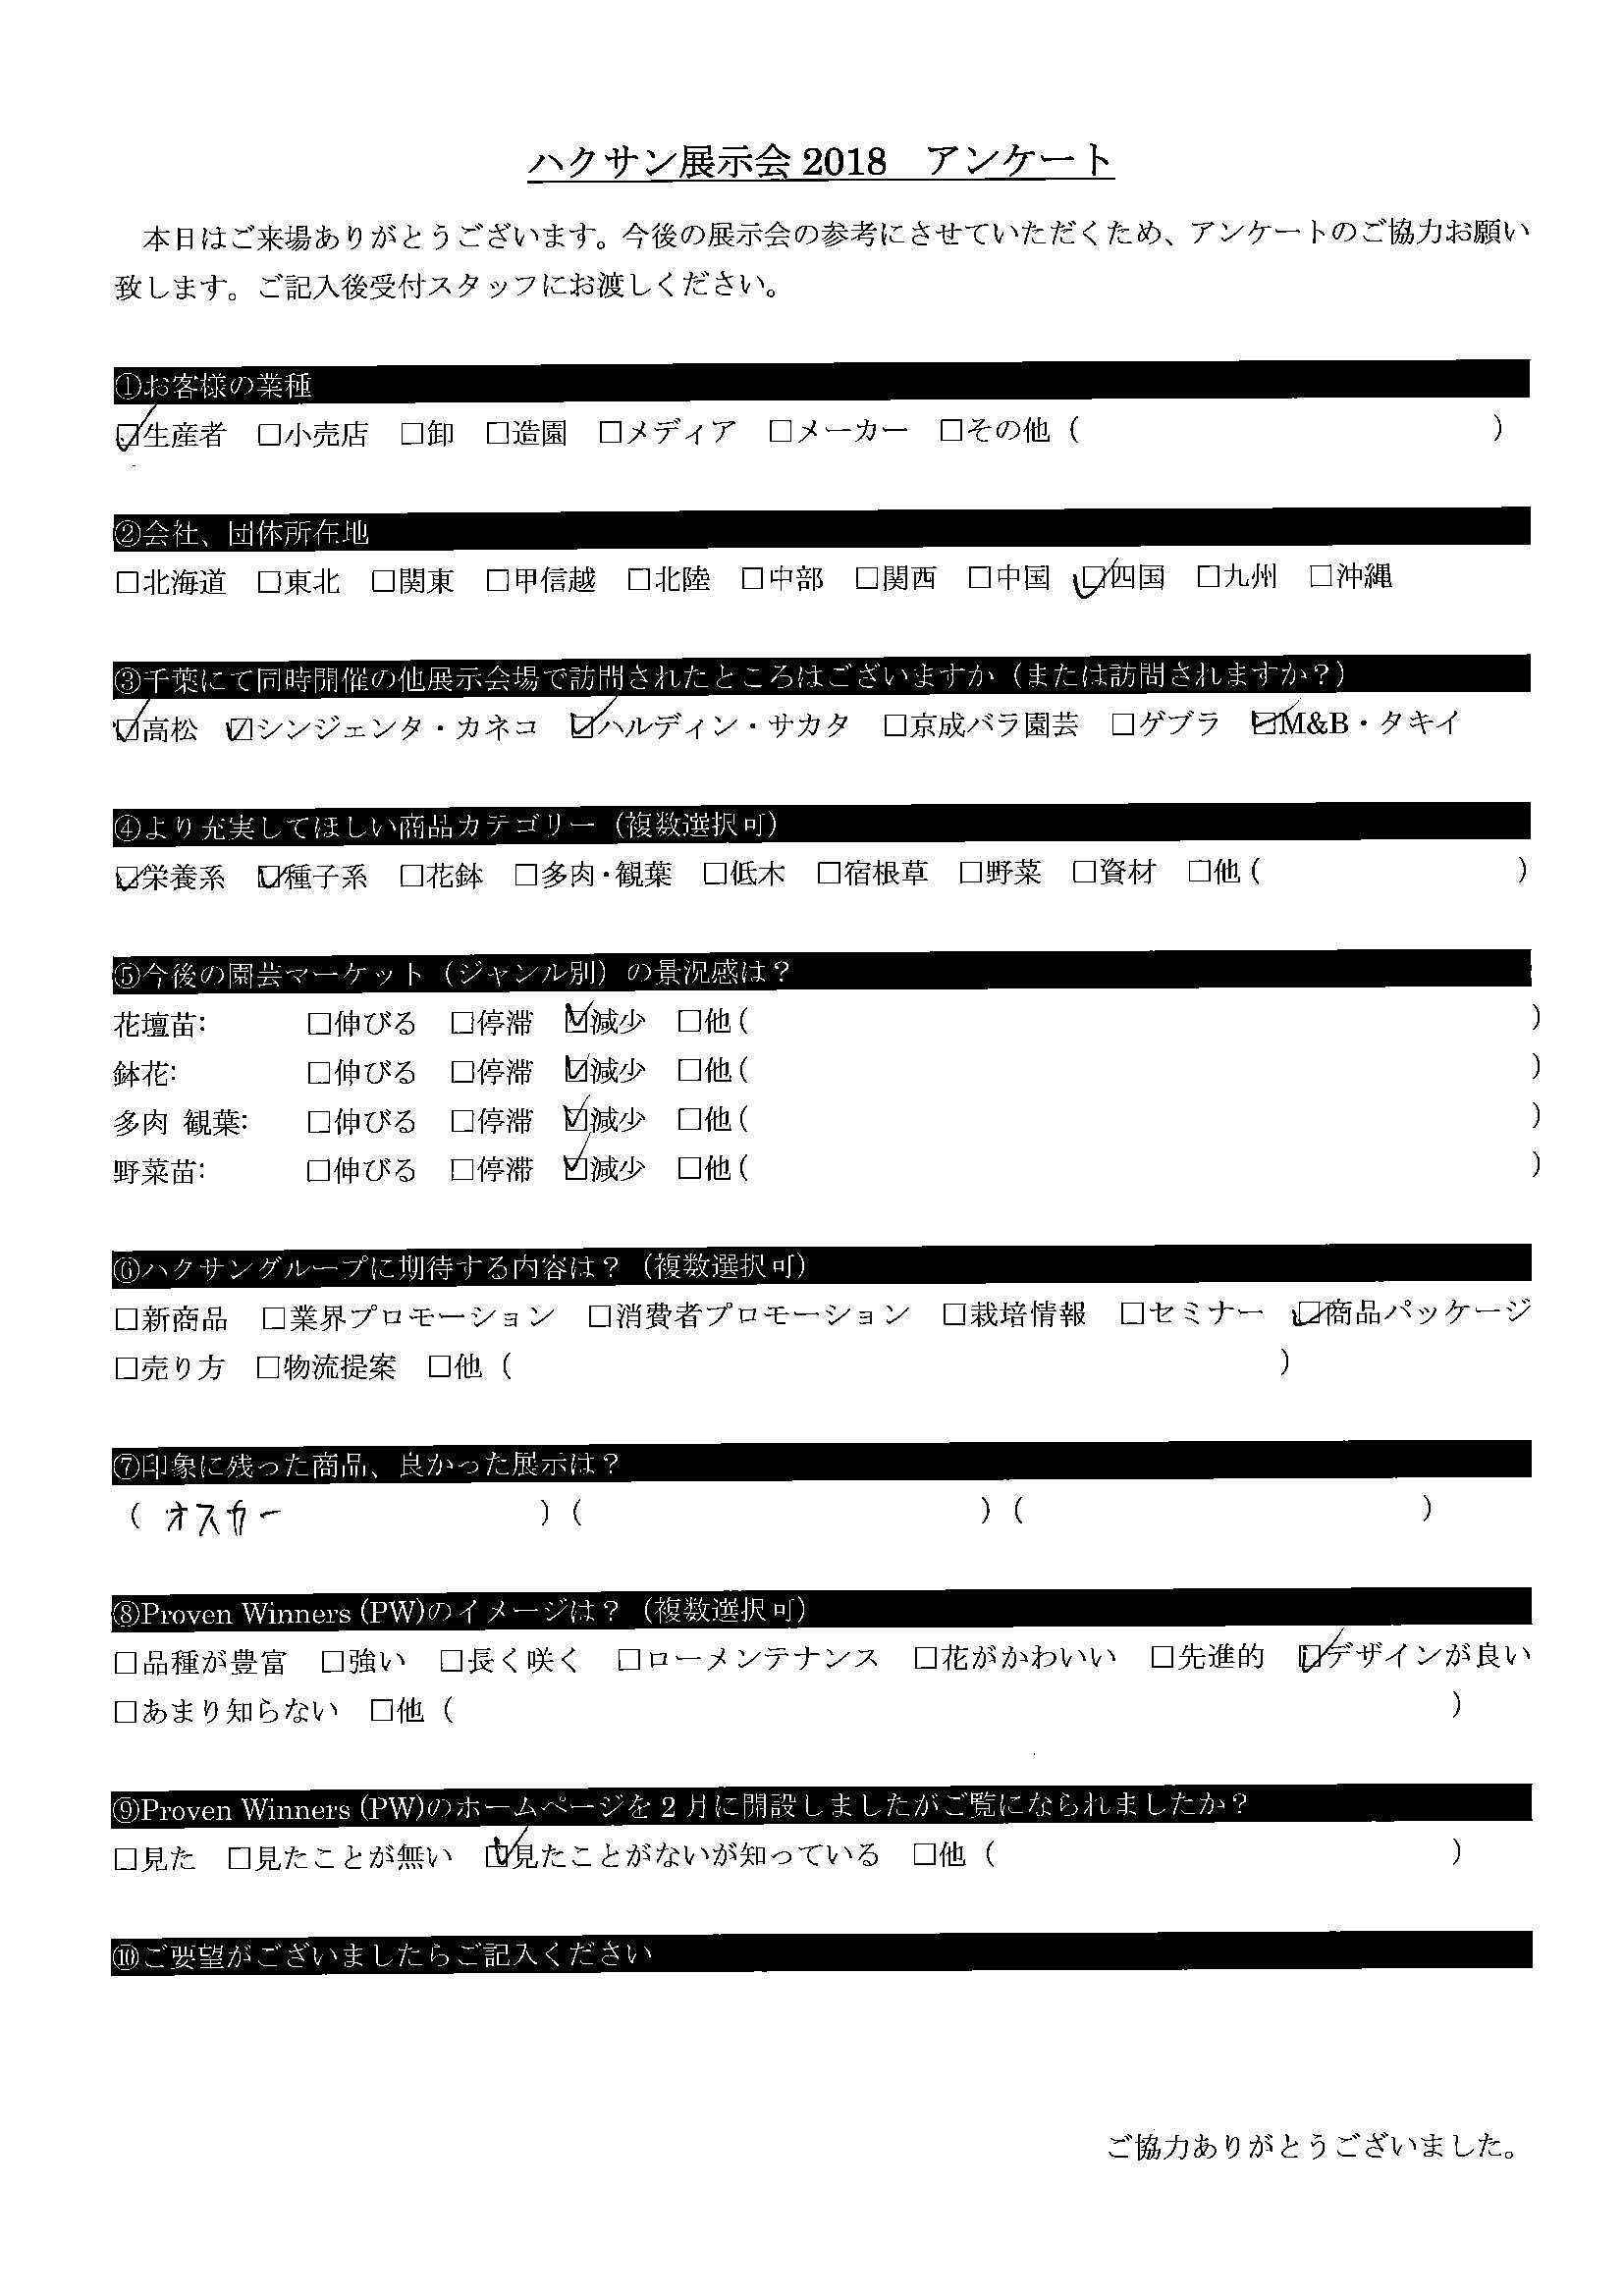 ハクサン展示会 2018　アンケート
本日はご来場ありがとうございます。今後の展示会の参考にさせていただくため、アンケートのご協力お願い
致します。ご記入後受付スタッフにお渡しください。
①お客様の業種
☑生産者　□小売店　□卸　□造園　□メディア　□メーカー　□その他（　）
②会社、団体所在地
□北海道　□東北　□関東　□甲信越　□北陸　□中部　□関西　□中国　☑四国　□九州　□沖縄
③千葉にて同時開催の他展示会場で訪問されたところはございますか（または訪問されますか？）
☑高松　☑シンジェンタ・カネコ　☑ハルディン・サカタ　□京成バラ園芸　□ゲブラ　☑M&B・タキイ
④より充実してほしい商品カテゴリー（複数選択可）
☑栄養系　☑種子系　□花鉢　□多肉・観葉　□低木　□宿根草　□野菜　□資材　□他（　）
⑤今後の園芸マーケット（ジャンル別）の景況感は？
花壇苗:　□伸びる　□停滞　☑減少　□他（　）
鉢花:　□伸びる　□停滞　☑減少　□他（　）
多肉 観葉:　□伸びる　□停滞　☑減少　□他（　）
野菜苗:　□伸びる　□停滞　☑減少　□他（　）
⑥ハクサングループに期待する内容は？（複数選択可）
□新商品　□業界プロモーション　□消費者プロモーション　□栽培情報　□セミナー　☑商品パッケージ
□売り方　□物流提案　□他（　）
⑦印象に残った商品、良かった展示は？
（ オスカー ）（　）（　）
⑧Proven Winners (PW)のイメージは？（複数選択可）
□品種が豊富　□強い　□長く咲く　□ローメンテナンス　□花がかわいい　□先進的　☑デザインが良い
□あまり知らない　□他（　）
⑨Proven Winners (PW)のホームページを 2 月に開設しましたがご覧になられましたか？
□見た　□見たことが無い　☑見たことがないが知っている　□他（　）
⑩ご要望がございましたらご記入ください
ご協力ありがとうございました。